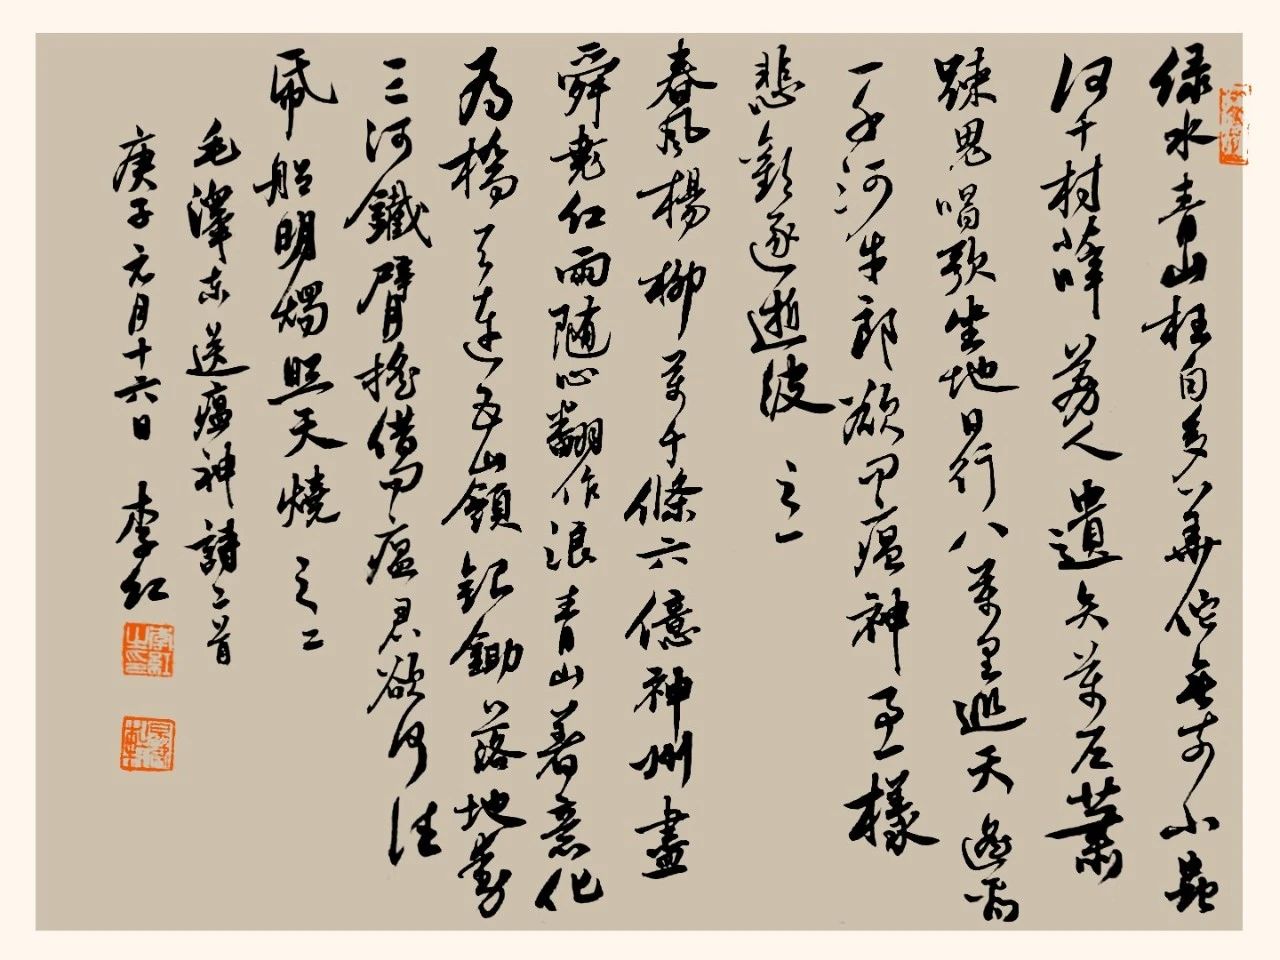 绿水青山枉自多華佗無奈小蟲
何千村薜荔人遺矢萬户蕭
踈鬼唱歌坐地日行八萬里巡天遥看
一千河牛郎欲問瘟神事一樣
悲歡逐逝波 之一
春風楊柳萬千條六億神州盡
舜堯紅雨随心翻作浪青山著意化
為橋天連五嶺銀鋤落地動
三河鐵臂搖借問瘟君欲何往
帋船明燭照天燒 之二
毛澤東送瘟神詩二首
庚子元月十六日 李紅
李紅之印